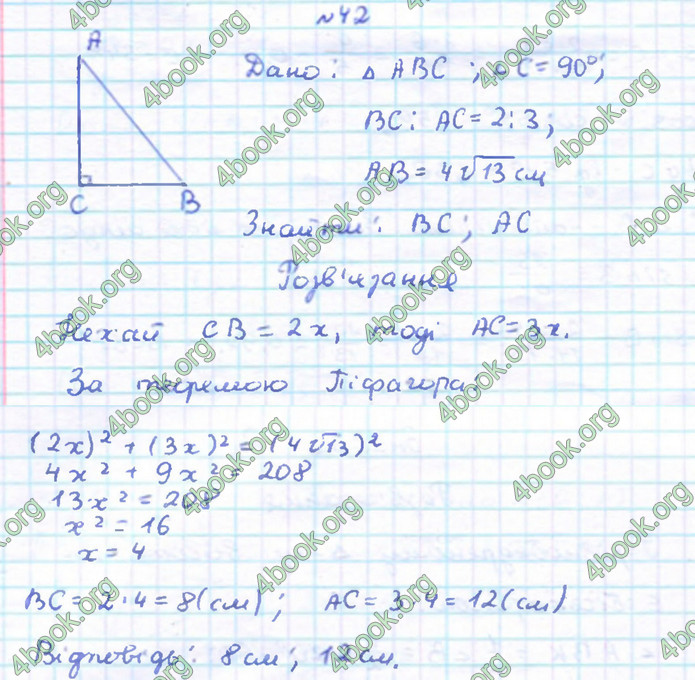 №42
A
C
B
Дано: Δ ABC ; ∠C = 90°;
BC : AC = 2 : 3;
AB = 4√13 см
Знайти: BC; AC
Розв'язання
Нехай CB = 2x, тоді AC = 3x.
За теоремою Піфагора:
(2x)² + (3x)² = (4√13)²
4x² + 9x² = 208
13x² = 208
x² = 16
x = 4
BC = 2·4 = 8(см); AC = 3·4 = 12(см)
Відповідь: 8 см; 12 см.
4book.org